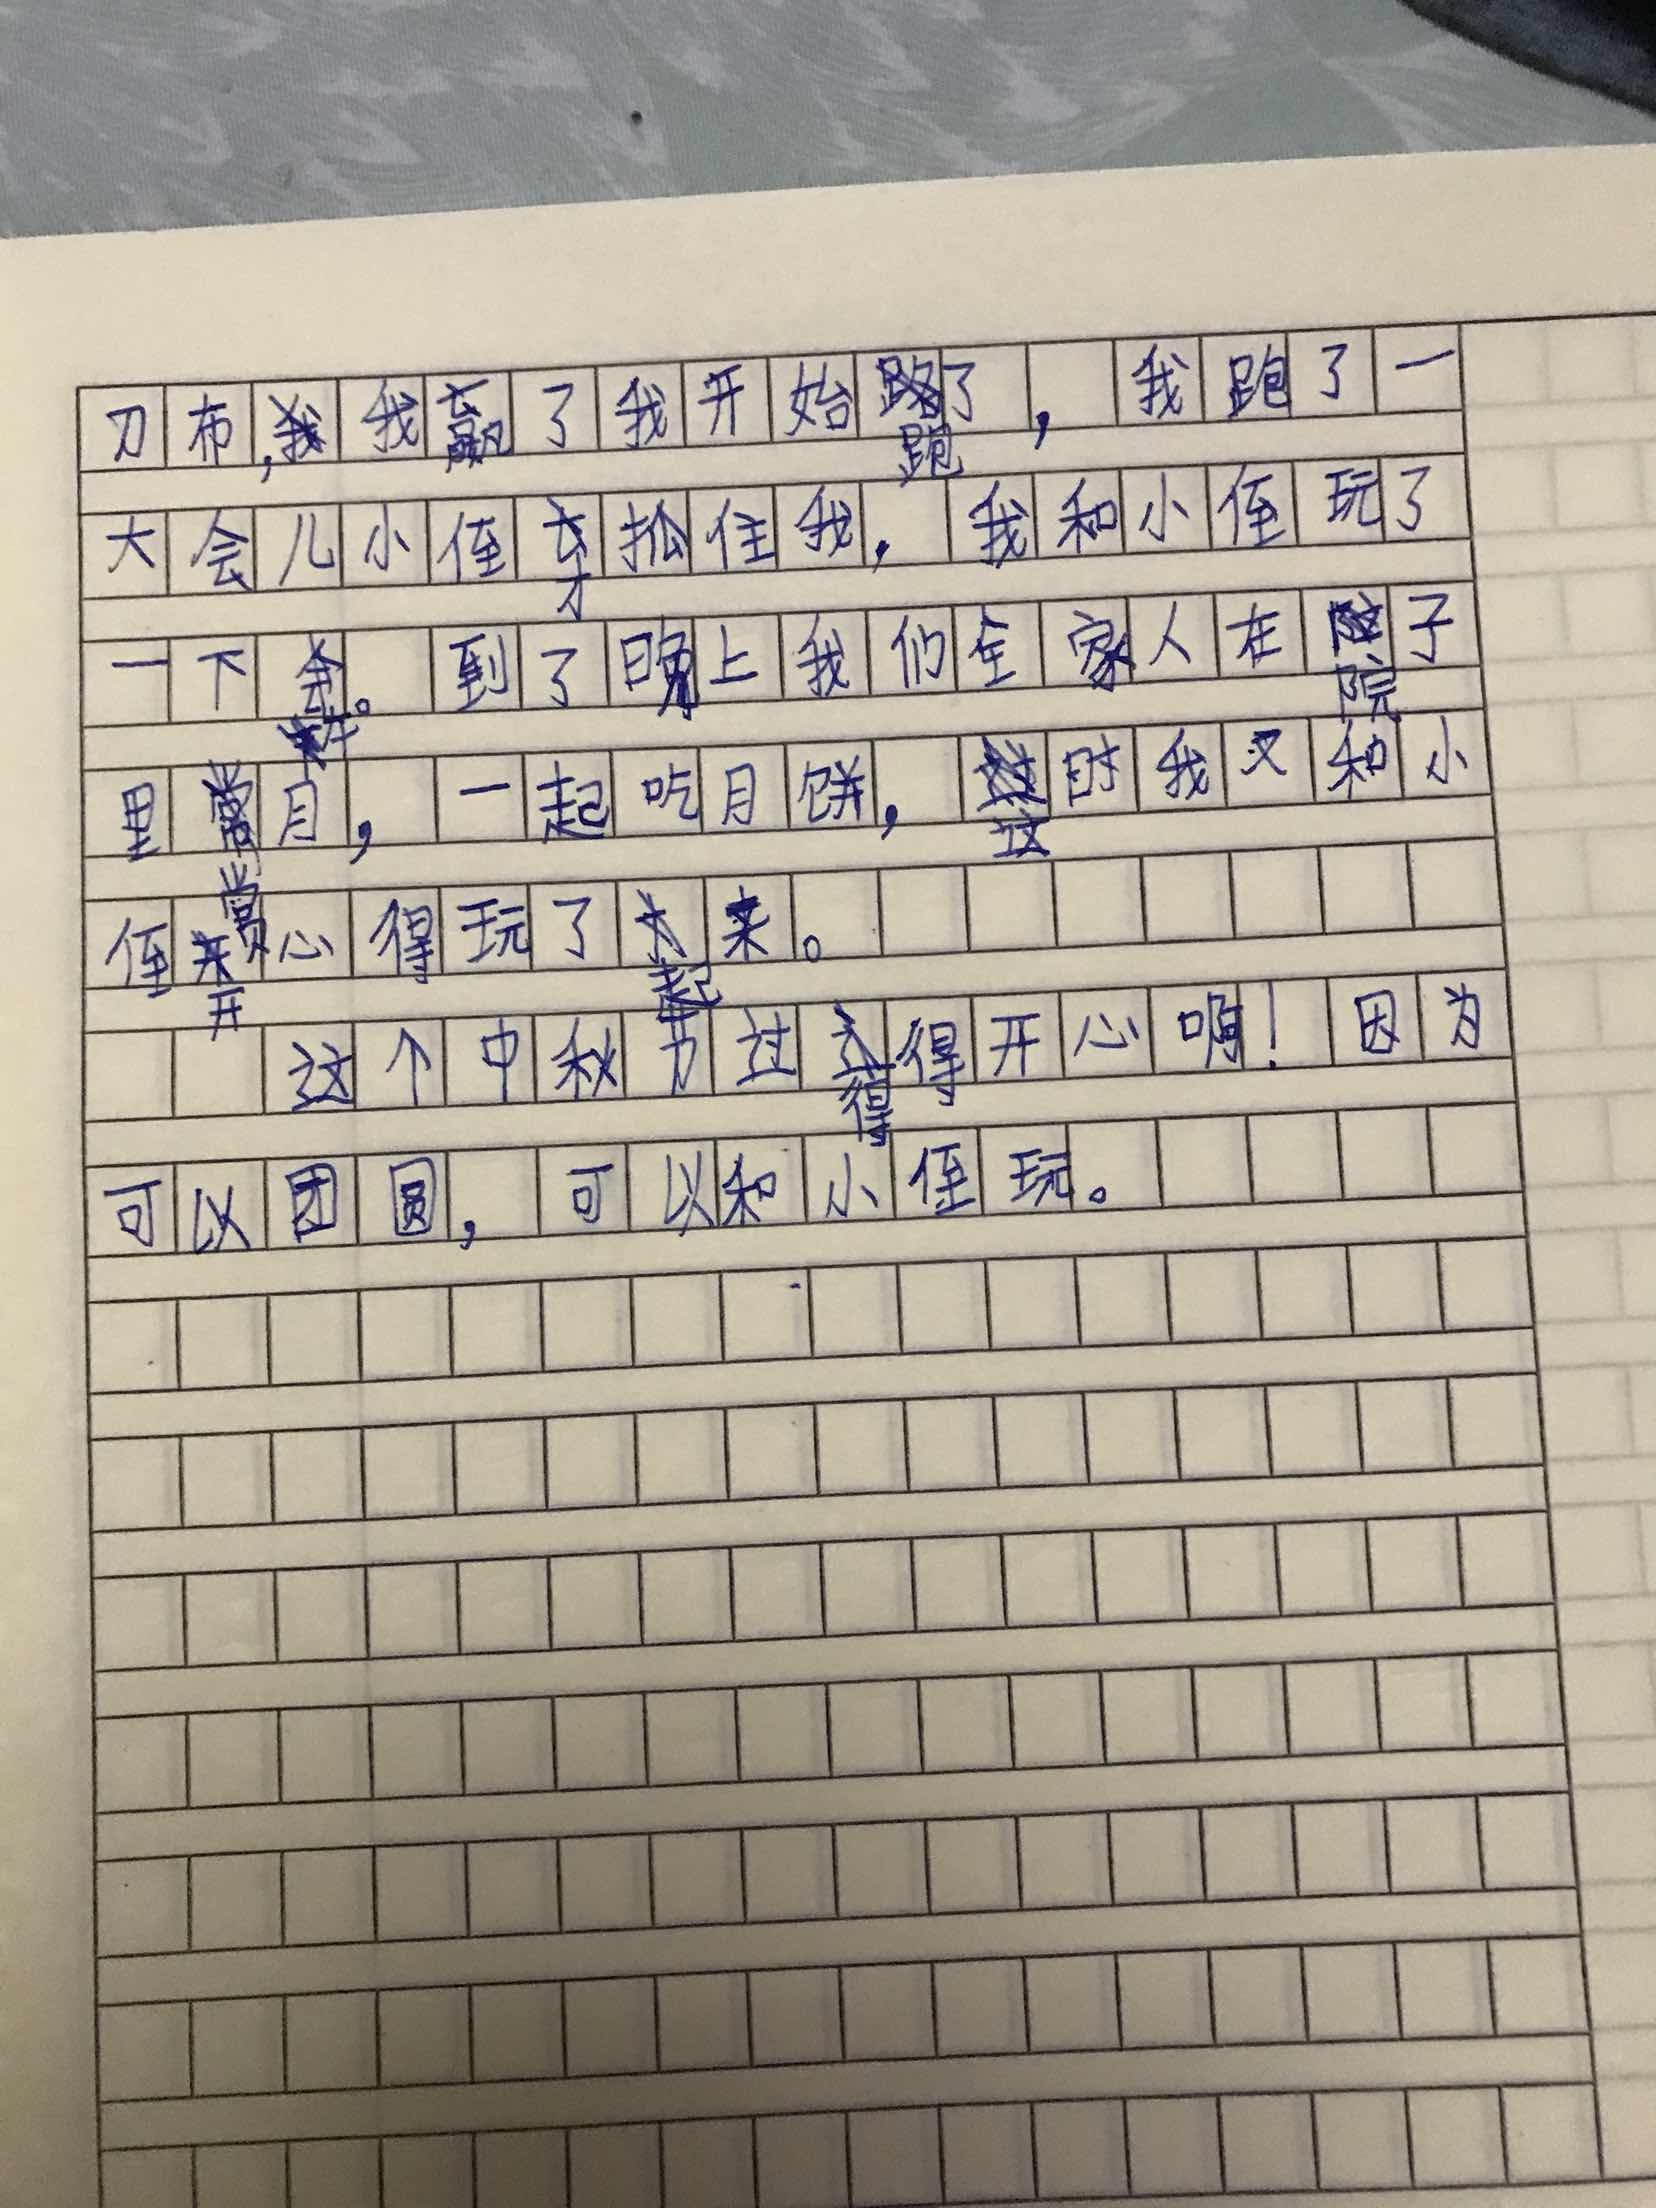 刀布,我赢了我开始跑了,我跑了一
大会儿小侄才抓住我,我和小侄玩了
一下午。到了晚上我们全家人在院子
里赏月,一起吃月饼,这时我又和小
侄开心得玩了起来。
这个中秋节过得得开心啊!因为
可以团圆,可以和小侄玩。